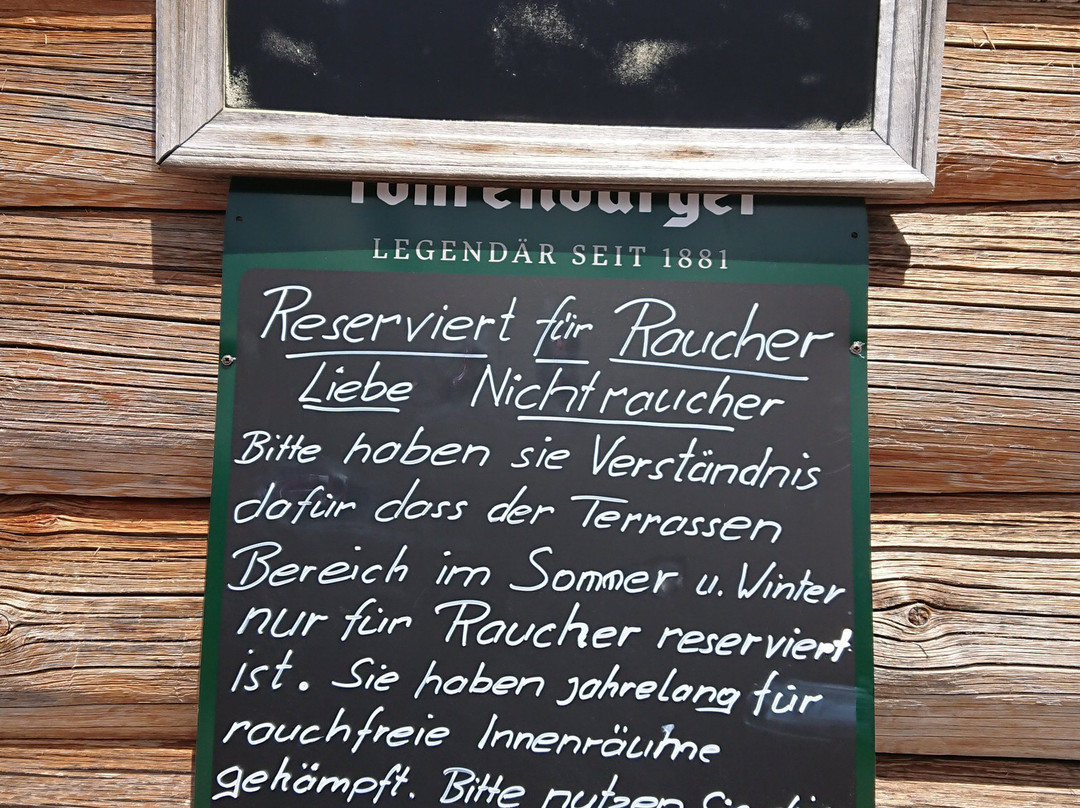 LEGENDÄR SEIT 1881
Reserviert für Raucher
Liebe Nichtraucher
Bitte haben sie Verständnis
dafür dass der Terrassen
Bereich im Sommer u. Winter
nur für Raucher reserviert
ist. Sie haben jahrelang für
rauchfreie Innenräume
gekämpft. Bitte nutzen Sie